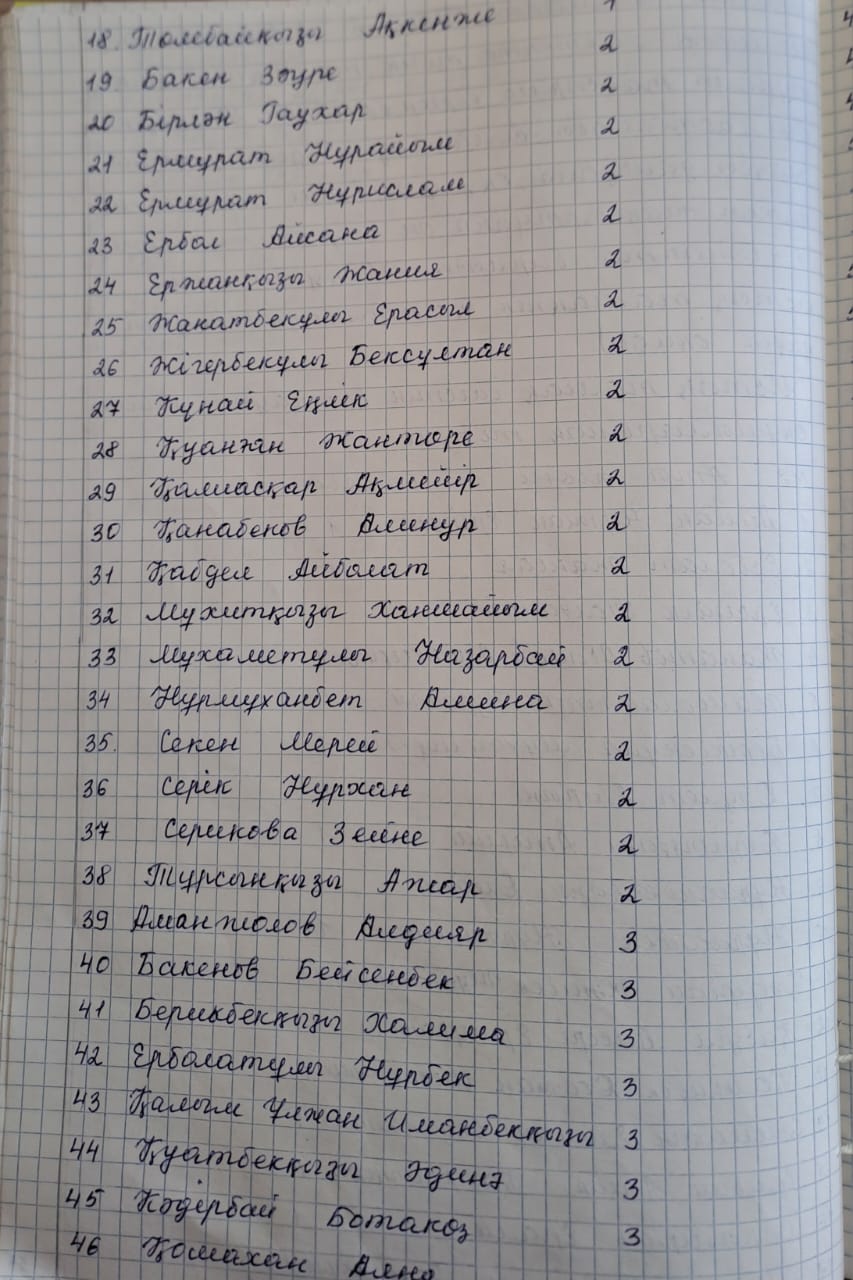 18. Төлебайқызы Ақкенже 1
19 Бакен Зәуре 2
20 Бірлән Гаухар 2
21 Ермурат Нурайым 2
22 Ермурат Нурислам 2
23 Ербол Айсана 2
24 Ержанқызы Жания 2
25 Жанатбекулы Ерасыл 2
26 Жігербекулы Бексултан 2
27 Кунай Еңлік 2
28 Қуанған Жантөре 2
29 Қалиасқар Ақмейір 2
30 Қанабеков Алинур 2
31 Қабдел Айболат 2
32 Мухитқызы Ханшайым 2
33 Мухаметулы Назарбай 2
34 Нурмуханбет Амина 2
35. Секен Мерей 2
36 Серік Нурхан 2
37 Серикова Зейне 2
38 Турсынқызы Ажар 2
39 Аманжолов Алдияр 3
40 Бакенов Бейсенбек 3
41 Берикбекқызы Халима 3
42 Ерболатулы Нурбек 3
43 Қалым Ұлжан Иманбекқызы 3
44 Қуатбекқызы Әдина 3
45 Кәдірбай Ботакөз 3
46 Қомахан